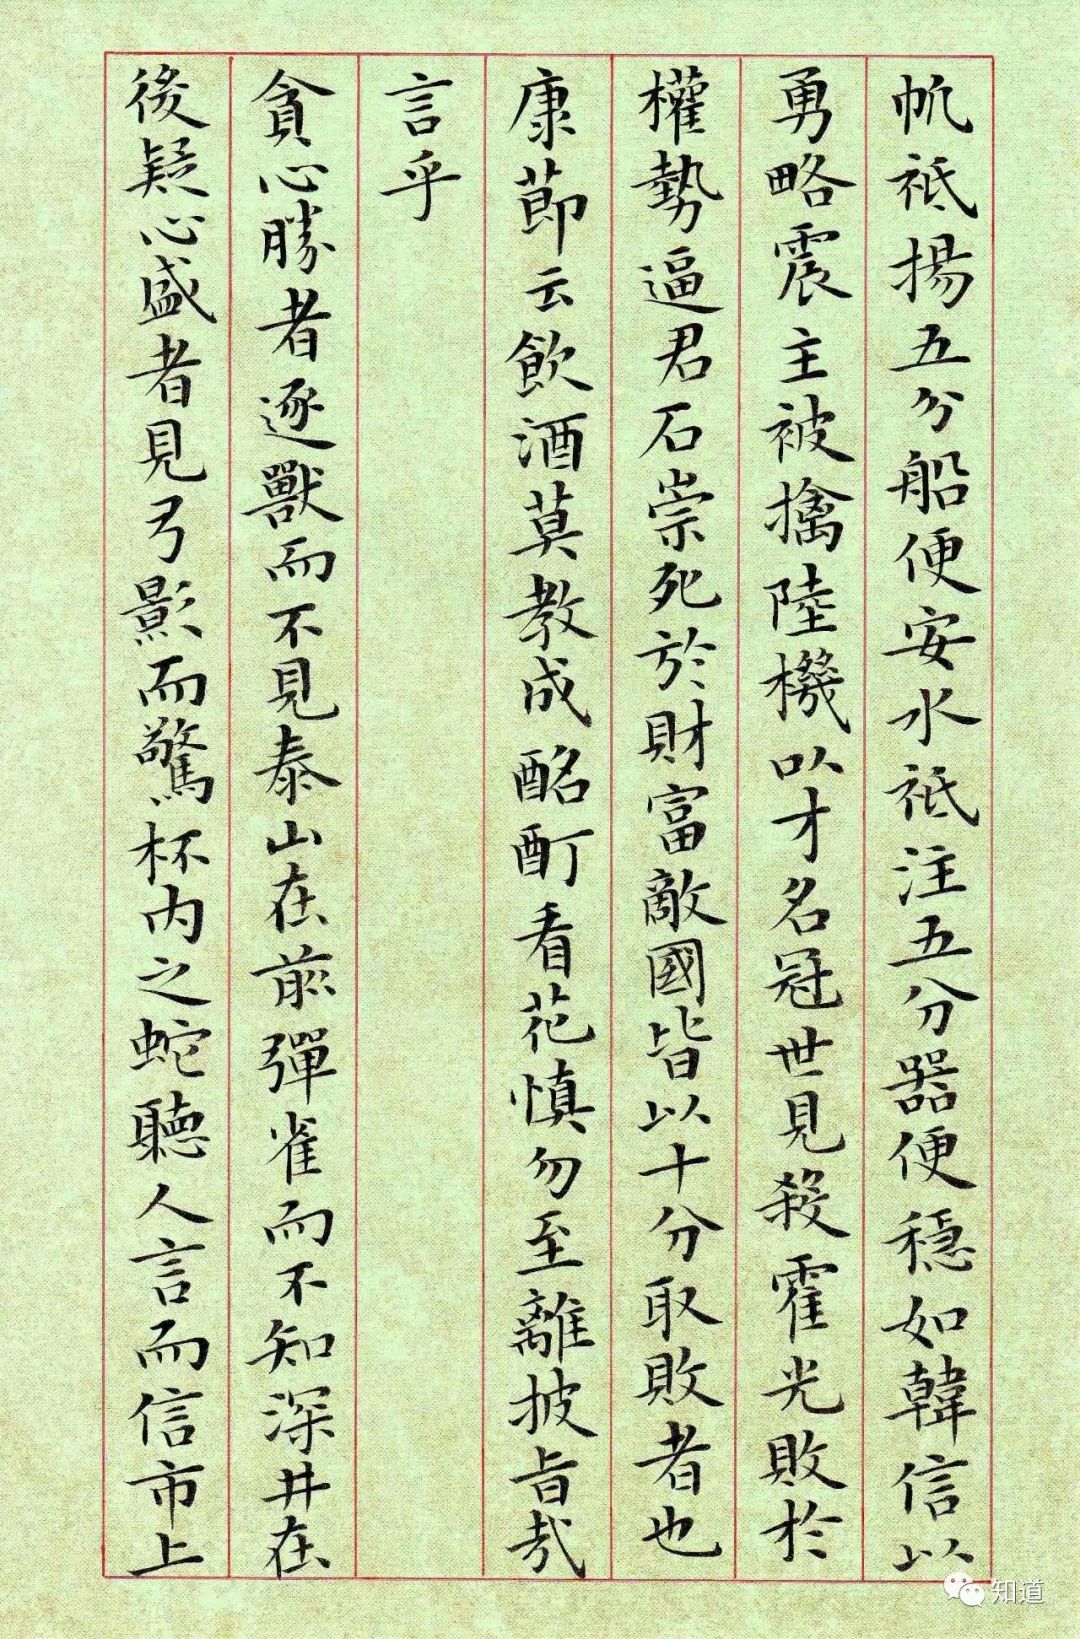 帆祗揚五分船便安水祗注五分器便穩如韓信以
勇略震主被擒陸機以才名冠世見殺霍光敗於
權勢逼君石崇死於財富敵國皆以十分取敗者也
康莭云飲酒莫教成酩酊看花慎勿至離披旨哉
言乎
貪心勝者逐獸而不見泰山在前彈雀而不知深井在
後疑心盛者見弓影而驚杯內之蛇聽人言而信市上
知道